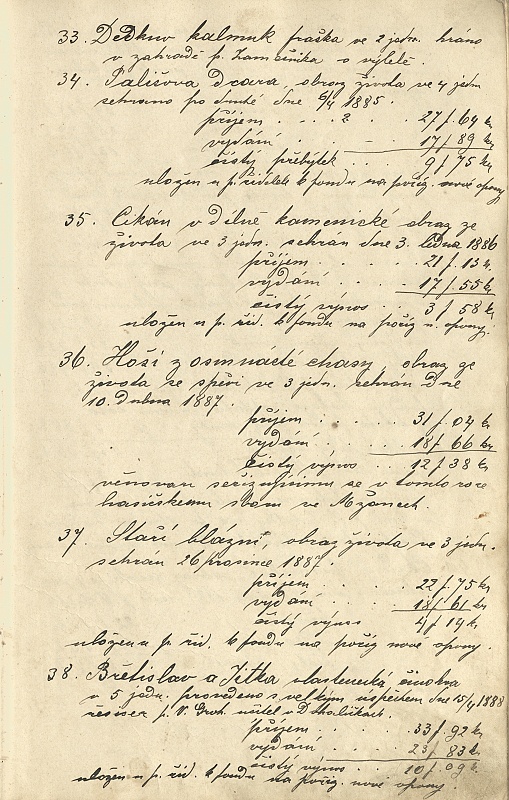 33. Dědkův kalmuk fraška ve 2 jedn. hráno
v zahradě p. Zámečníka o výletě.
34. Pališova dcera, obraz života ve 4 jedn
sehráno po druhé dne 6/4 1885.
příjem . . . . 27 f. 64 k
vydání . . . – 17 f 89 k
čistý přebytek . . . 9 f 75 k
uložen u p. řiditele k fondu na poříz. nové opony
35. Cikán v dílně kamenické obraz ze
života ve 3 jedn. sehrán dne 3. ledna 1886
příjem . . . . 21 f. 13 k.
vydání . . . . 17 f. 55 k
čistý výnos . . . 3 f 58 k
uložen u p. řid. k fondu na pořiz n. opony.
36. Hoši z osmnácté chasy, obraz ze
života se zpěvi ve 3 jedn. sehrán dne
10. dubna 1887.
příjem . . . . 31 f. 04 k
vydání . . . . 18 f 66 k
čistý výnos . . . 12 f 38 k
věnován seřizujícímu se v tomto roce
hasičskému sboru ve Mžanech.
37. Staří blázni, obraz života ve 3 jedn.
sehrán 26 prosince 1887.
příjem . . . . 22 f. 75 k
vydání . . . . 18 f 61 k
čistý výnos 4 f 14 k
uložen u p. řid. k fondu na pořiz nové opony.
38. Břetislav a Jitka vlastenecká činohra
v 5 jedn. provedeno s velkým úspěchem dne 15/4 1888
řežisér p. V. Groh. učitel v Dohaličkách.
příjem . . . . 33 f. 92 k
vydání . . . . 23 f 83 k.
čistý výnos . . . 10 f 09 k
uložen u p. řid. k fondu na pořiz. nové opony.